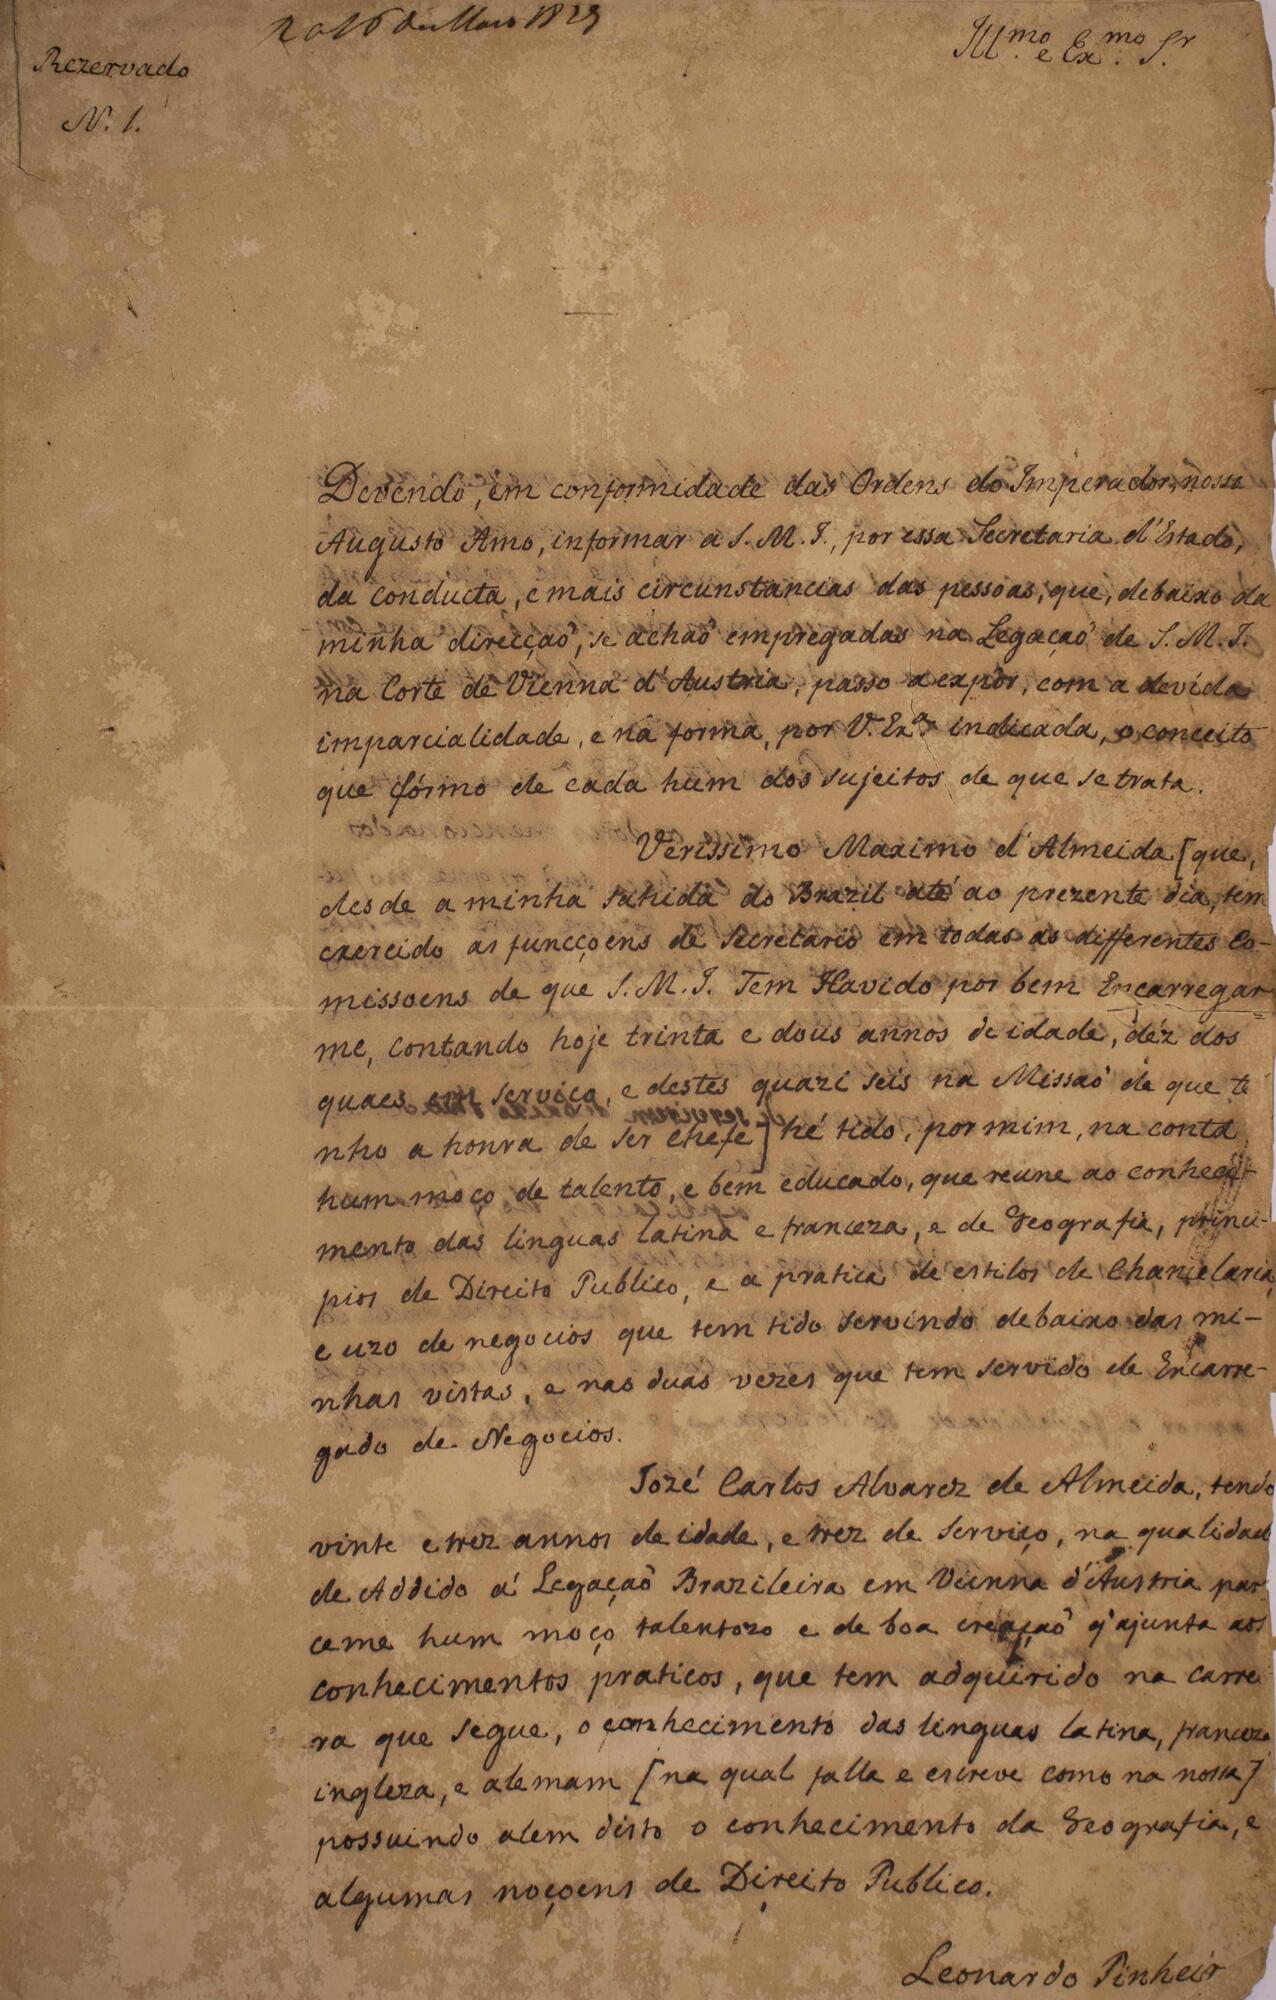 R a 16 de Maio 1829
Rezervado
N. 1.
Ill.mo e Ex.mo Sr
Devendo, em conformidade das Ordens do Imperador, nosso
Augusto Amo, informar a S. M. I., por essa Secretaria d'Estado,
da conducta, e mais circunstancias das pessoas, que, debaixo da
minha direcçaõ, se achaõ empregadas na Legaçaõ de S. M. I.
na Corte de Vienna d'Austria, passo a expôr, com a devida
imparcialidade, e na forma, por V. Ex.a indicada, o conceito
que fórmo de cada hum dos sujeitos de que se trata.
Verissimo Maximo d'Almeida [que,
desde a minha sahida do Brazil até ao prezente dia, tem
exercido as funcçoens de Secretario em todas as differentes Co-
missoens de que S. M. I. Tem Havido por bem Encarregar
me, contando hoje trinta e dous annos de idade, déz dos
quaes em serviço, e destes quazi seis na Missaõ de que te
nho a honra de ser Chefe] hé tido, por mim, na conta
hum moço de talento, e bem educado, que reune ao conheci-
mento das linguas latina e franceza, e de Geografia, princi-
pios de Direito Publico, e a pratica de estilos de Chancelaria,
e uzo de negocios que tem tido servindo debaixo das mi-
nhas vistas, e nas duas vezes que tem servido de Encarre-
gado de Negocios.
Jozé Carlos Alvarez de Almeida, tendo
vinte e trez annos de idade, e trez de serviço, na qualidade
de Addido á Legaçaõ Brazileira em Vienna d'Austria pare
ceme hum moço talentozo e de boa creaçaõ q' ajunta aos
conhecimentos praticos, que tem adquirido na carre
ra que segue, o conhecimento das linguas latina, franceza
ingleza, e alemam [na qual falla e escreve como na nossa]
possuindo alem disto o conhecimento da Geografia, e
algumas noçoens de Direito Publico.
Leonardo Pinheir